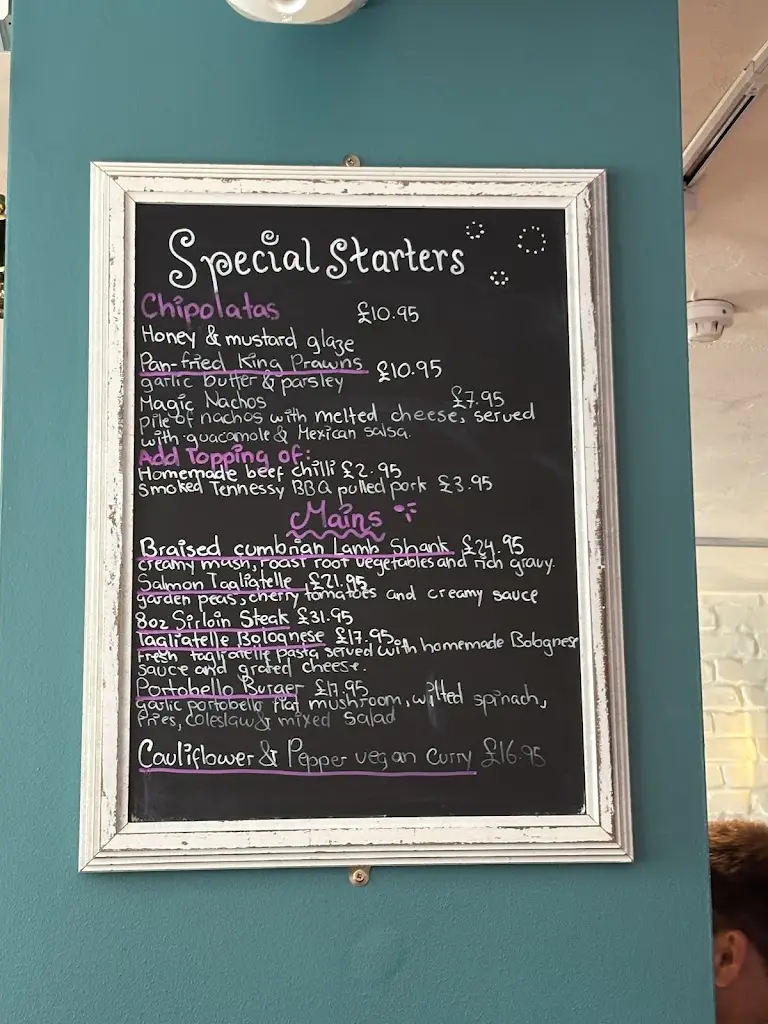 Special Starters
Chipolatas £10.95
Honey & mustard glaze
Pan-fried King Prawns £10.95
garlic butter & parsley
Magic Nachos £7.95
pile of nachos with melted cheese, served
with guacamole & Mexican salsa.
Add Topping of:
Homemade beef chilli £2.95
Smoked Tennessy BBQ pulled pork £3.95
Mains
Braised cumbrian Lamb Shank £24.95
creamy mash, roast root vegetables and rich gravy.
Salmon Tagliatelle £21.95
garden peas, cherry tomatoes and creamy sauce
8oz Sirloin Steak £31.95
Tagliatelle Bolognese £17.95
Fresh tagliatelle pasta served with homemade Bolognese
sauce and grated cheese.
Portobello Burger £17.95
garlic portobello flat mushroom, wilted spinach,
fries, coleslaw & mixed Salad
Cauliflower & Pepper vegan Curry £16.95